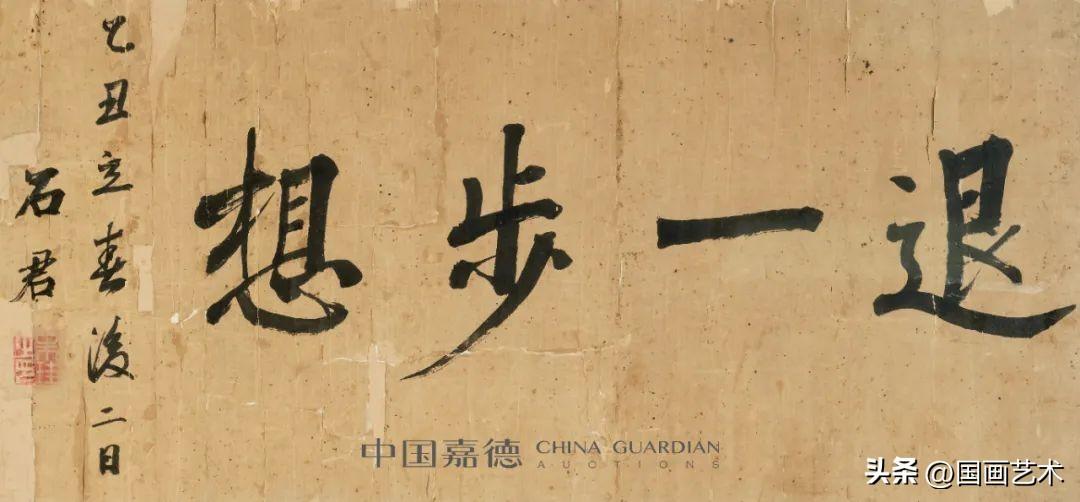 退一步想
乙丑立春後二日
石君
朱珪之印
中国嘉德 CHINA GUARDIAN
AUCTIONS
头条 @国画艺术